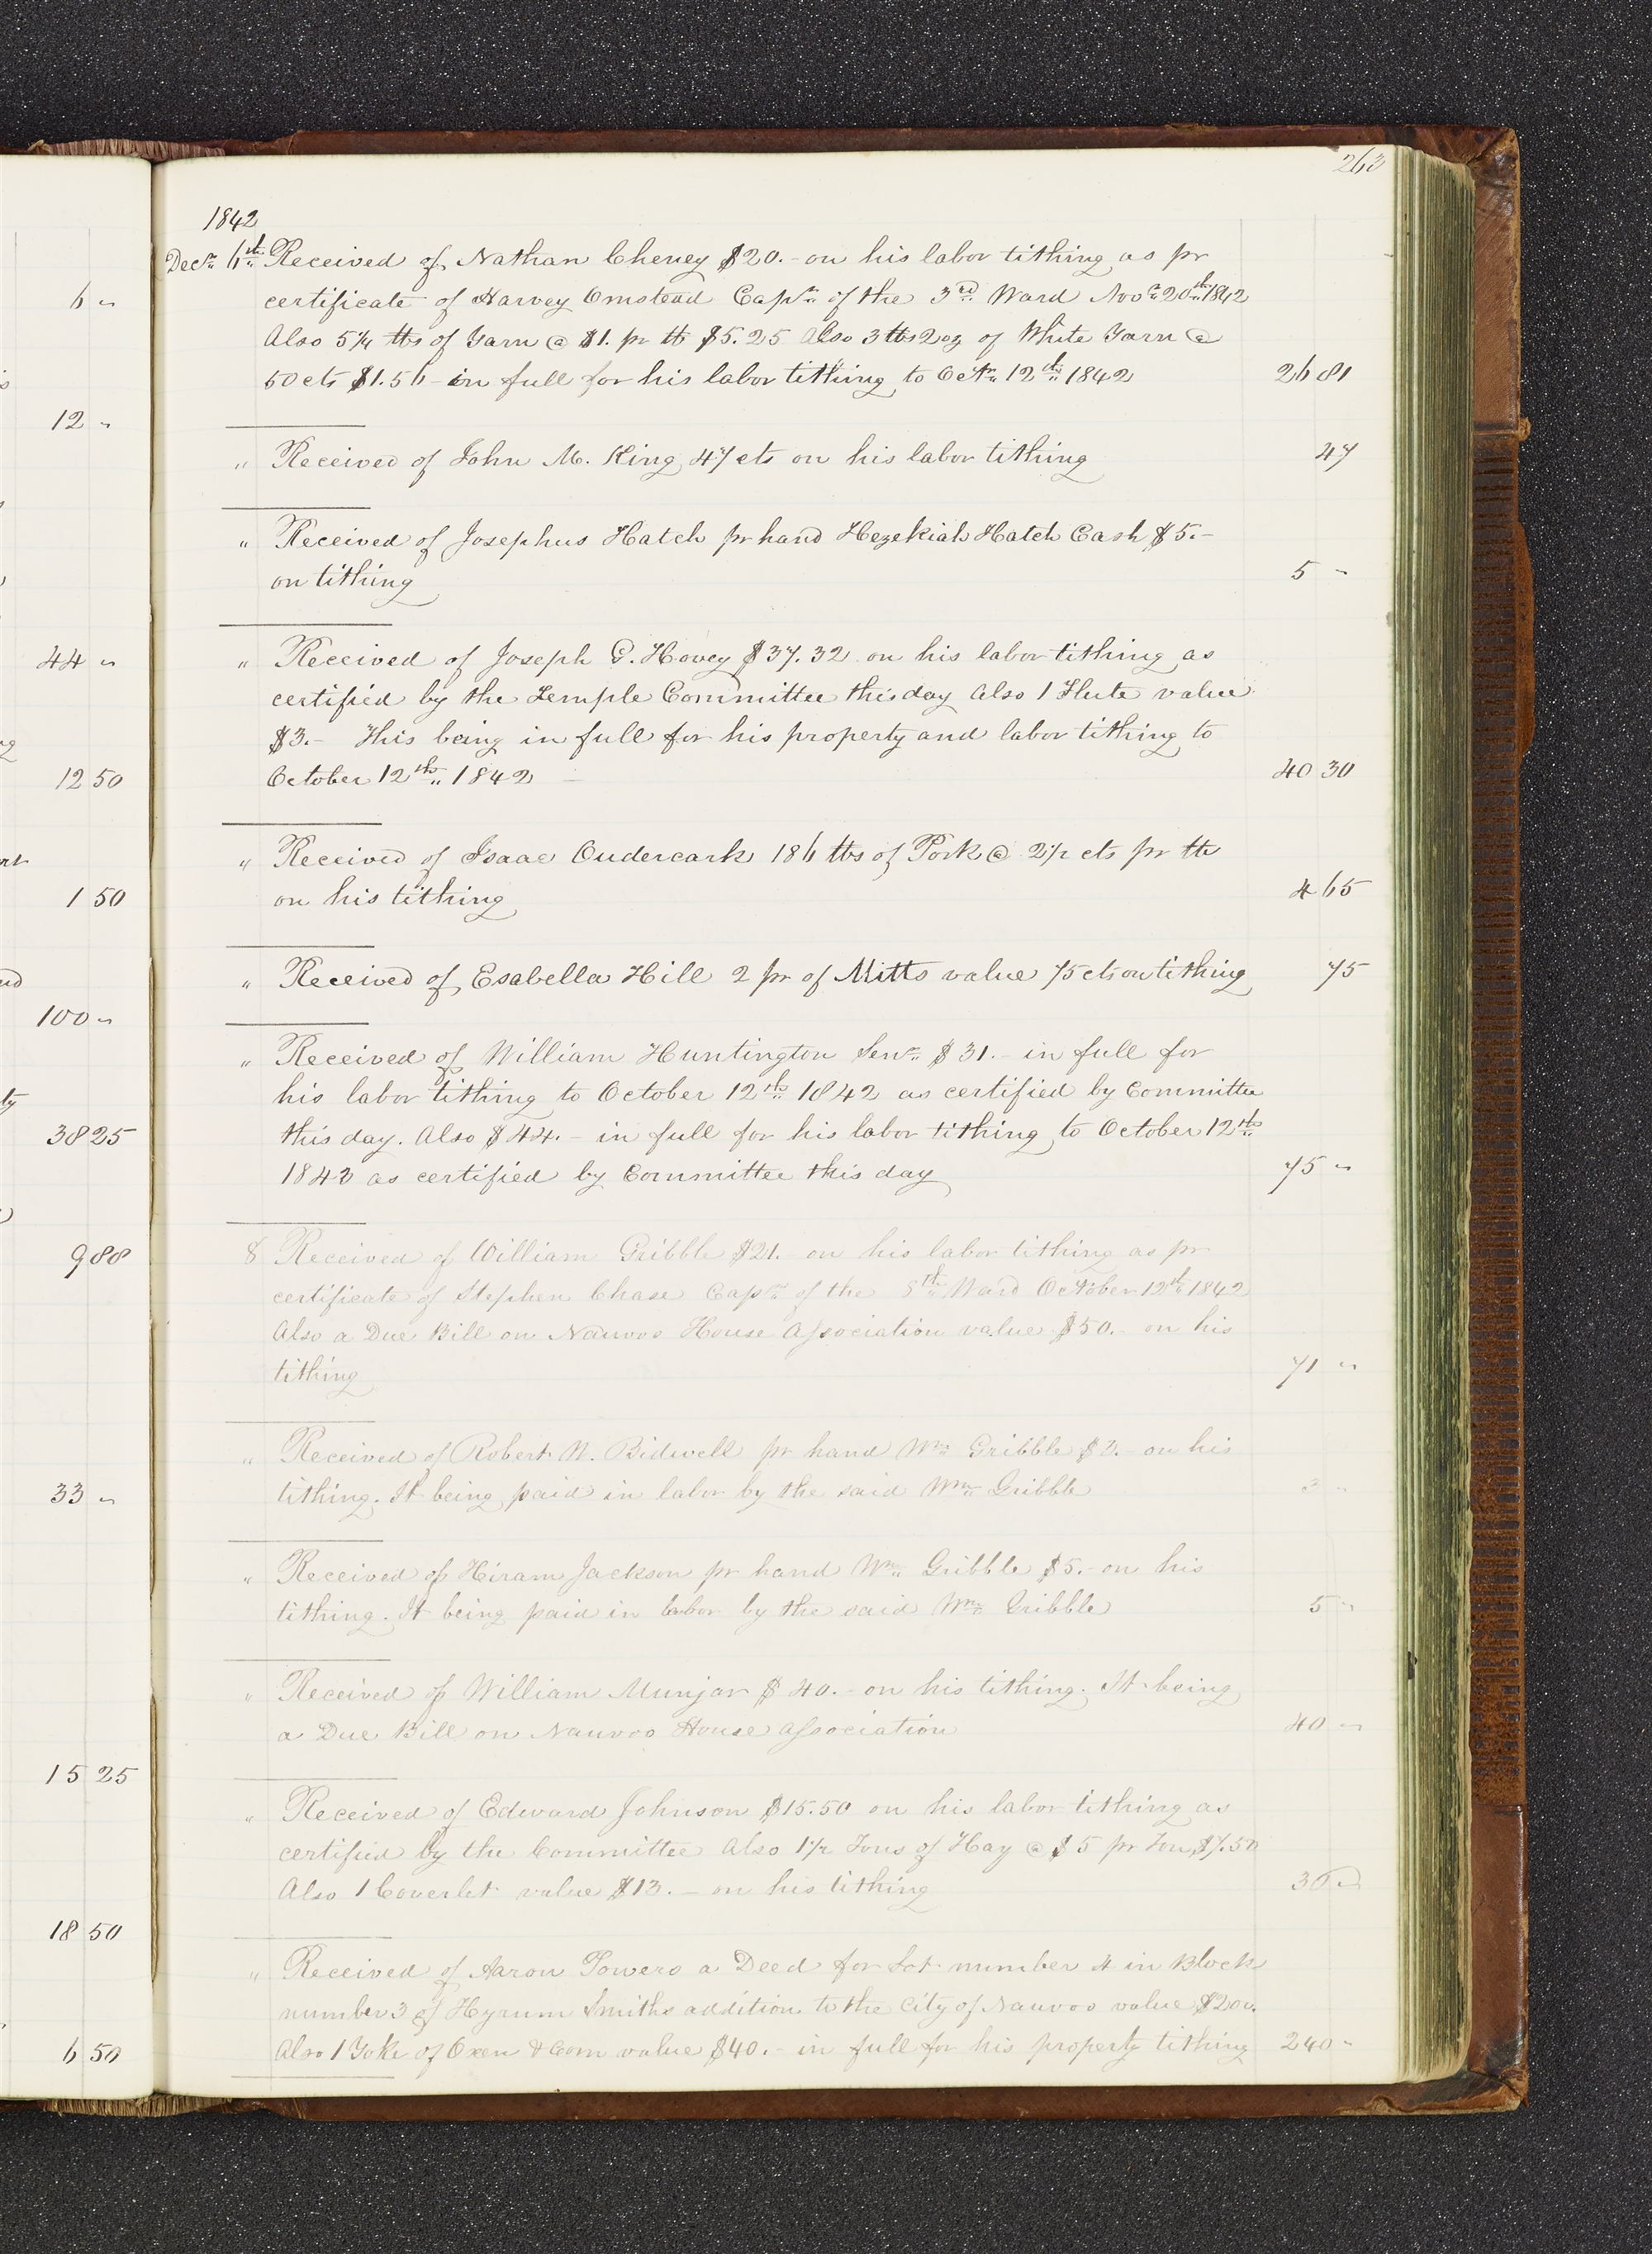 263
1842
Decr. 6th Received of Nathan Cheney $20.- on his labor tithing as pr
certificate of Harvey Omstead Capt. of the 3rd Ward Novr. 20th 1842
Also 5¼ lbs of Yarn @ $1. pr lb $5.25 Also 3 lbs 2 oz of White Yarn @
50 cts $1.56 - in full for his labor tithing to Octr. 12th 1842 26 81
" Received of John M. King 47 cts on his labor tithing 47
" Received of Josephus Hatch pr hand Hezekiah Hatch Cash $5.-
on tithing 5 "
" Received of Joseph G. Hovey $37.32 on his labor tithing as
certified by the Temple Committee this day Also 1 Flute value
$3.- This being in full for his property and labor tithing to
October 12th 1842 - 40 30
" Received of Isaac Oudercark 186 lbs of Pork @ 2½ cts pr lb
on his tithing 4 65
" Received of Esabella Hill 2 pr of Mitts value 75 cts on tithing 75
" Received of William Huntington Senr. $31.- in full for
his labor tithing to October 12th 1842 as certified by Committee
this day. Also $44.- in full for his labor tithing to October 12th
1843 as certified by Committee this day 75 "
8 Received of William Gribble $21.- on his labor tithing as pr
certificate of Stephen Chase Capt. of the 8th Ward October 12th 1842
Also a Due Bill on Nauvoo House Association value $50.- on his
tithing 71 "
" Received of Robert N. Bidwell pr hand Wm. Gribble $3.- on his
tithing. It being paid in labor by the said Wm. Gribble 3 "
" Received of Hiram Jackson pr hand Wm. Gribble $5.- on his
tithing. It being paid in labor by the said Wm. Gribble 5 "
" Received of William Munjar $40.- on his tithing. It being
a Due Bill on Nauvoo House Association 40 "
" Received of Edward Johnson $15.50 on his labor tithing as
certified by the Committee Also 1½ Tons of Hay @ $5 pr Ton $7.50
Also 1 Coverlet value $13.- on his tithing 36 "
" Received of Aaron Powers a Deed for Lot number 4 in Block
number 3 of Hyrum Smiths addition to the City of Nauvoo value $200.
Also 1 Yoke of Oxen & Corn value $40.- in full for his property tithing 240 "
6 "
12 "
44 "
12 50
1 50
100 "
38 25
9 88
33 "
15 25
18 50
6 50